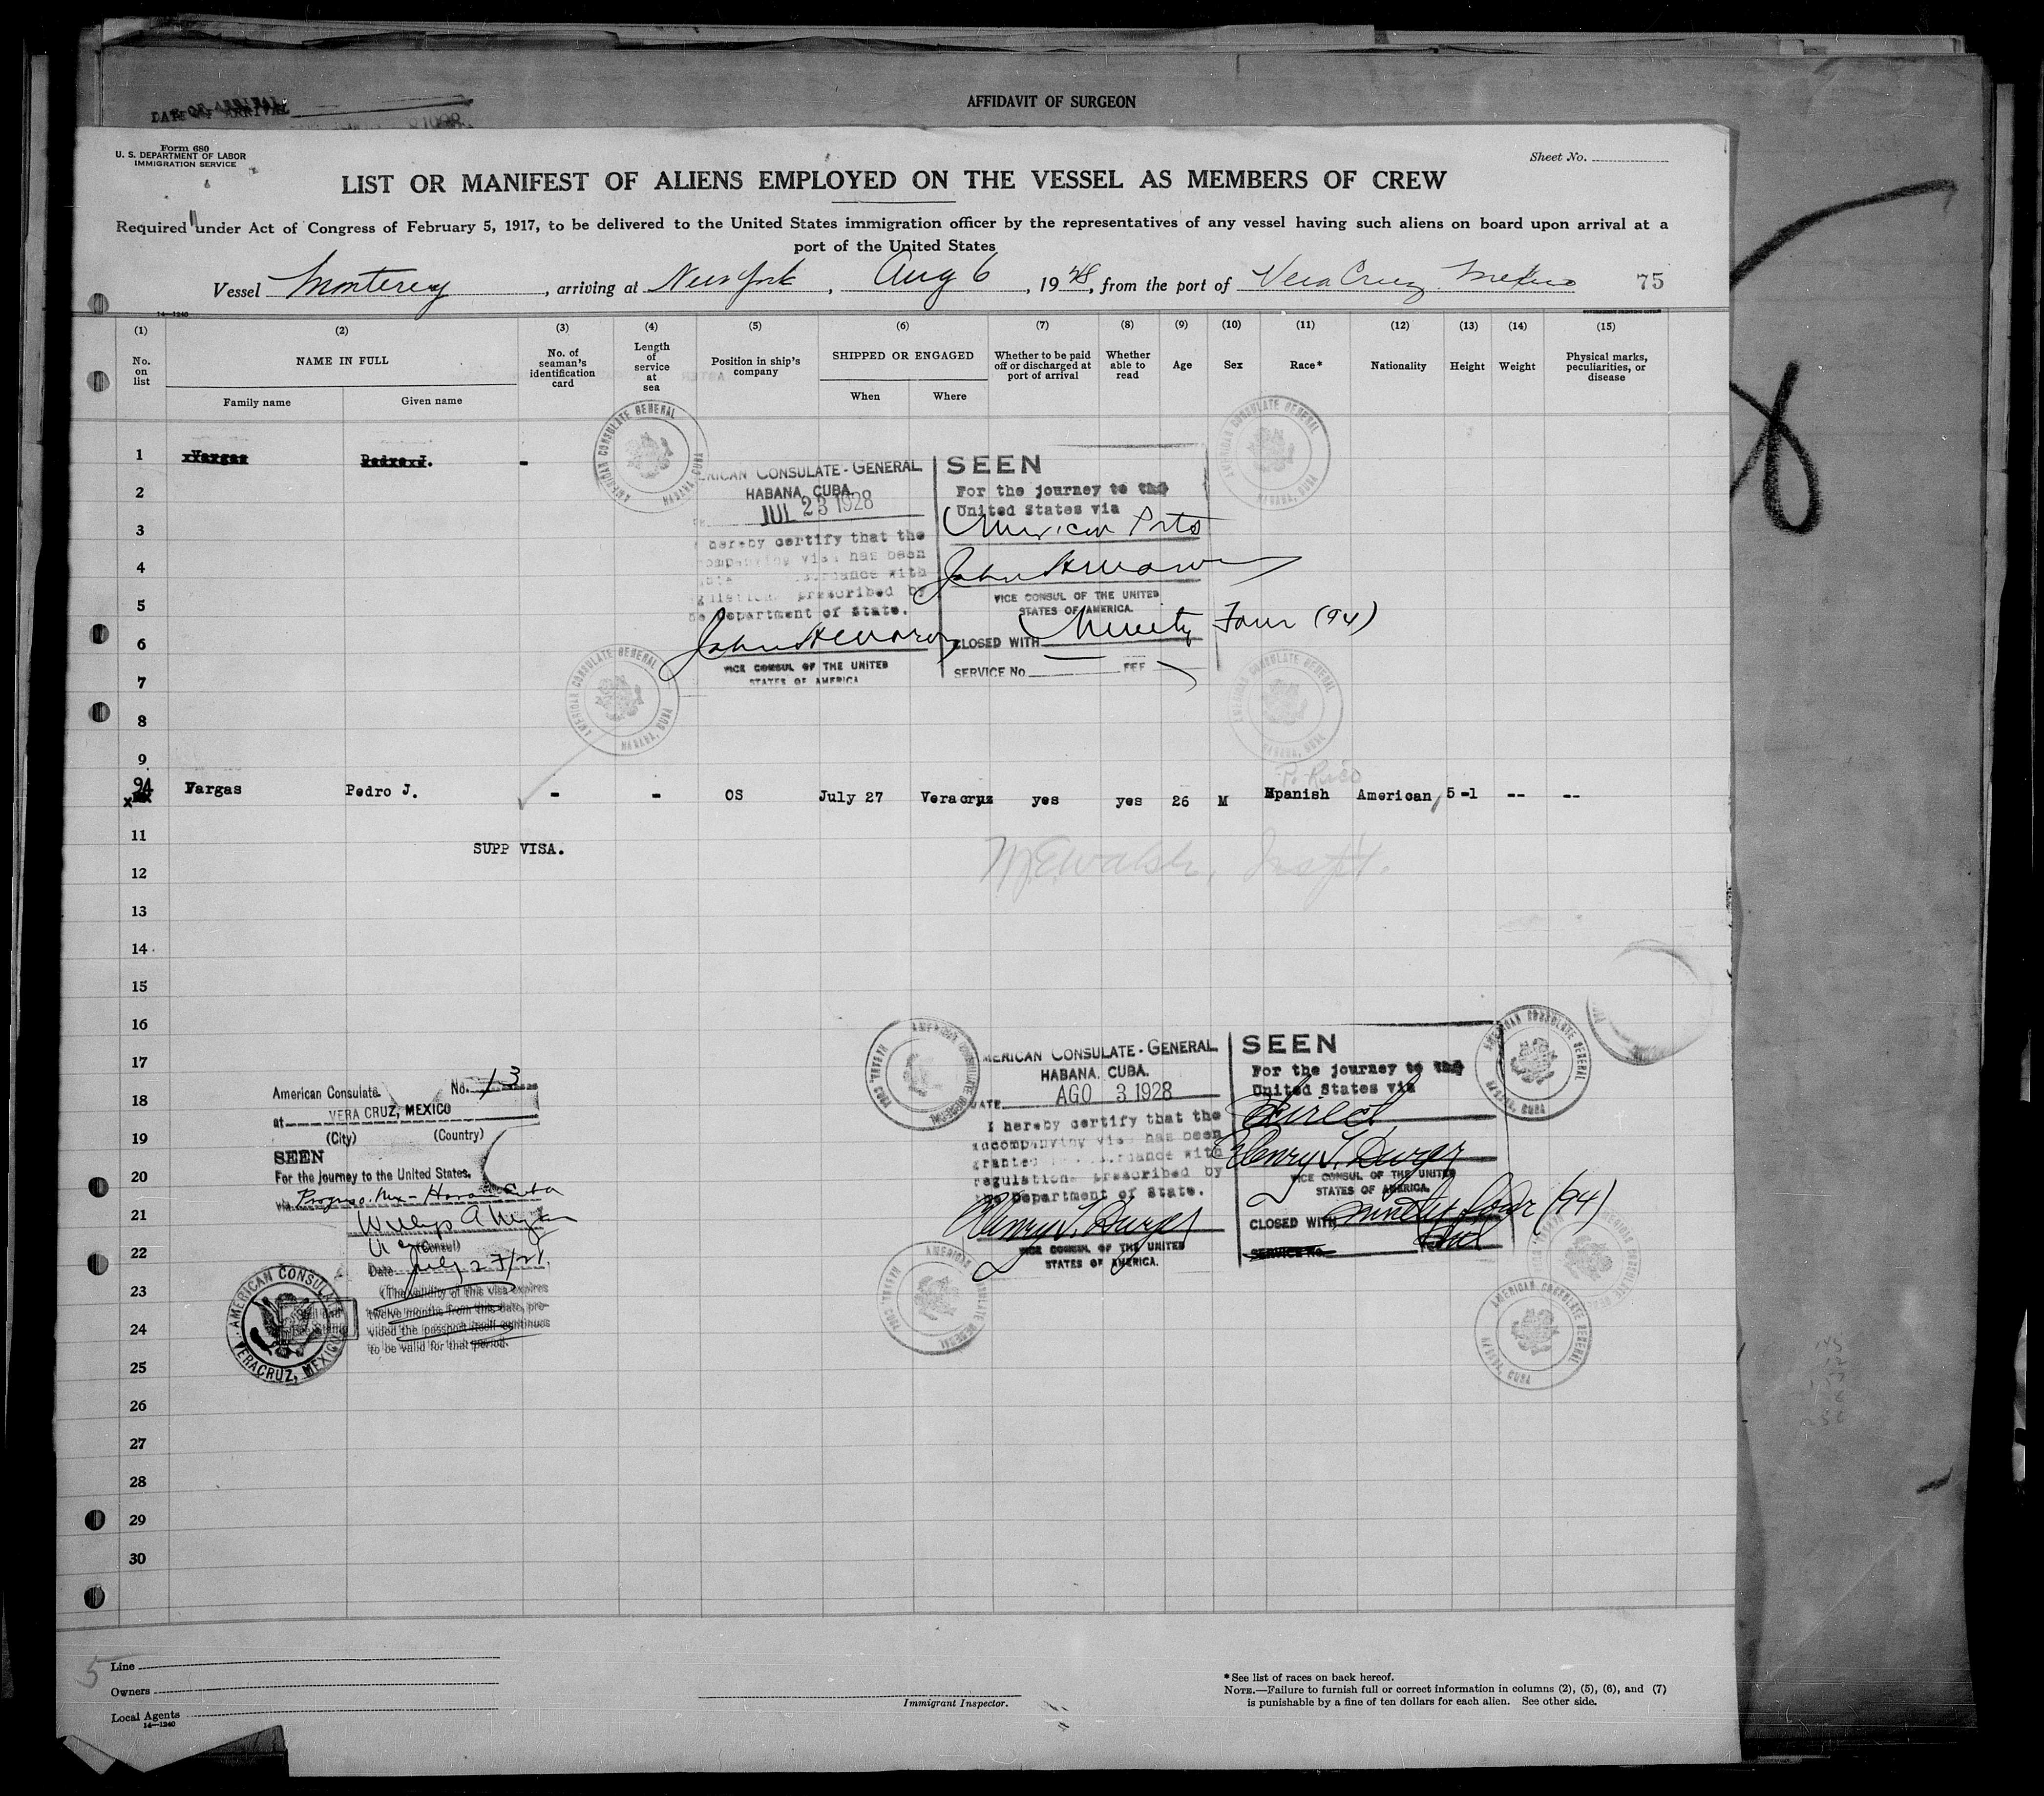 AFFIDAVIT OF SURGEON
DATE OF ARRIVAL
Form 680
U. S. DEPARTMENT OF LABOR
IMMIGRATION SERVICE
Sheet No.
LIST OR MANIFEST OF ALIENS EMPLOYED ON THE VESSEL AS MEMBERS OF CREW
Required under Act of Congress of February 5, 1917, to be delivered to the United States immigration officer by the representatives of any vessel having such aliens on board upon arrival at a
port of the United States
Vessel Monterey, arriving at New York, Aug 6, 1928, from the port of Vera Cruz Mexico 75
14—1240
(1) (2) (3) (4) (5) (6) (7) (8) (9) (10) (11) (12) (13) (14) (15)
No. on list
NAME IN FULL
Family name Given name
No. of seaman's identification card
Length of service at sea
Position in ship's company
SHIPPED OR ENGAGED
When Where
Whether to be paid off or discharged at port of arrival
Whether able to read
Age
Sex
Race*
Nationality
Height
Weight
Physical marks, peculiarities, or disease
1 Vargas Pedro J. -
2
3
4
5
6
7
8
9
AMERICAN CONSULATE GENERAL
HABANA, CUBA
RICAN CONSULATE-GENERAL
HABANA, CUBA.
JUL 23 1928
hereby certify that the
visa has been
with
prescribed by
Department of State.
VICE CONSUL OF THE UNITED
STATES OF AMERICA
SEEN
For the journey to the
United States via
Mexican Ports
VICE CONSUL OF THE UNITED
STATES OF AMERICA.
CLOSED WITH Ninety Four (94)
SERVICE No. FEE
AMERICAN CONSULATE GENERAL
HABANA, CUBA
P. Rico
94 Vargas Pedro J. - - OS July 27 Veracruz yes yes 26 M Spanish American 5-1 -- --
11
SUPP VISA.
M.E. Walsh, Inspt.
12
13
14
15
16
17
18
19
20
21
22
23
24
25
26
27
28
29
30
American Consulate No. 13
at VERA CRUZ, MEXICO
(City) (Country)
SEEN
For the journey to the United States,
via Progreso Mex - Havana Cuba
(Consul)
Date July 27/28
(The validity of this visa expires
twelve months from this date, pro-
vided the passport itself continues
to be valid for that period.
AMERICAN CONSULATE
VERACRUZ, MEXICO
AMERICAN CONSULATE GENERAL
HABANA, CUBA
MERICAN CONSULATE-GENERAL
HABANA, CUBA.
DATE AGO 3 1928
I hereby certify that the
accompanying visa has been
granted with
regulations prescribed by
the Department of State.
VICE CONSUL OF THE UNITED
STATES OF AMERICA.
SEEN
For the journey to the
United States via
Direct
VICE CONSUL OF THE UNITED
STATES OF AMERICA.
CLOSED WITH ninety four (94)
SERVICE No.
AMERICAN CONSULATE GENERAL
HABANA, CUBA
5
Line
Owners
Local Agents
14—1240
Immigrant Inspector.
*See list of races on back hereof.
NOTE.—Failure to furnish full or correct information in columns (2), (5), (6), and (7)
is punishable by a fine of ten dollars for each alien. See other side.